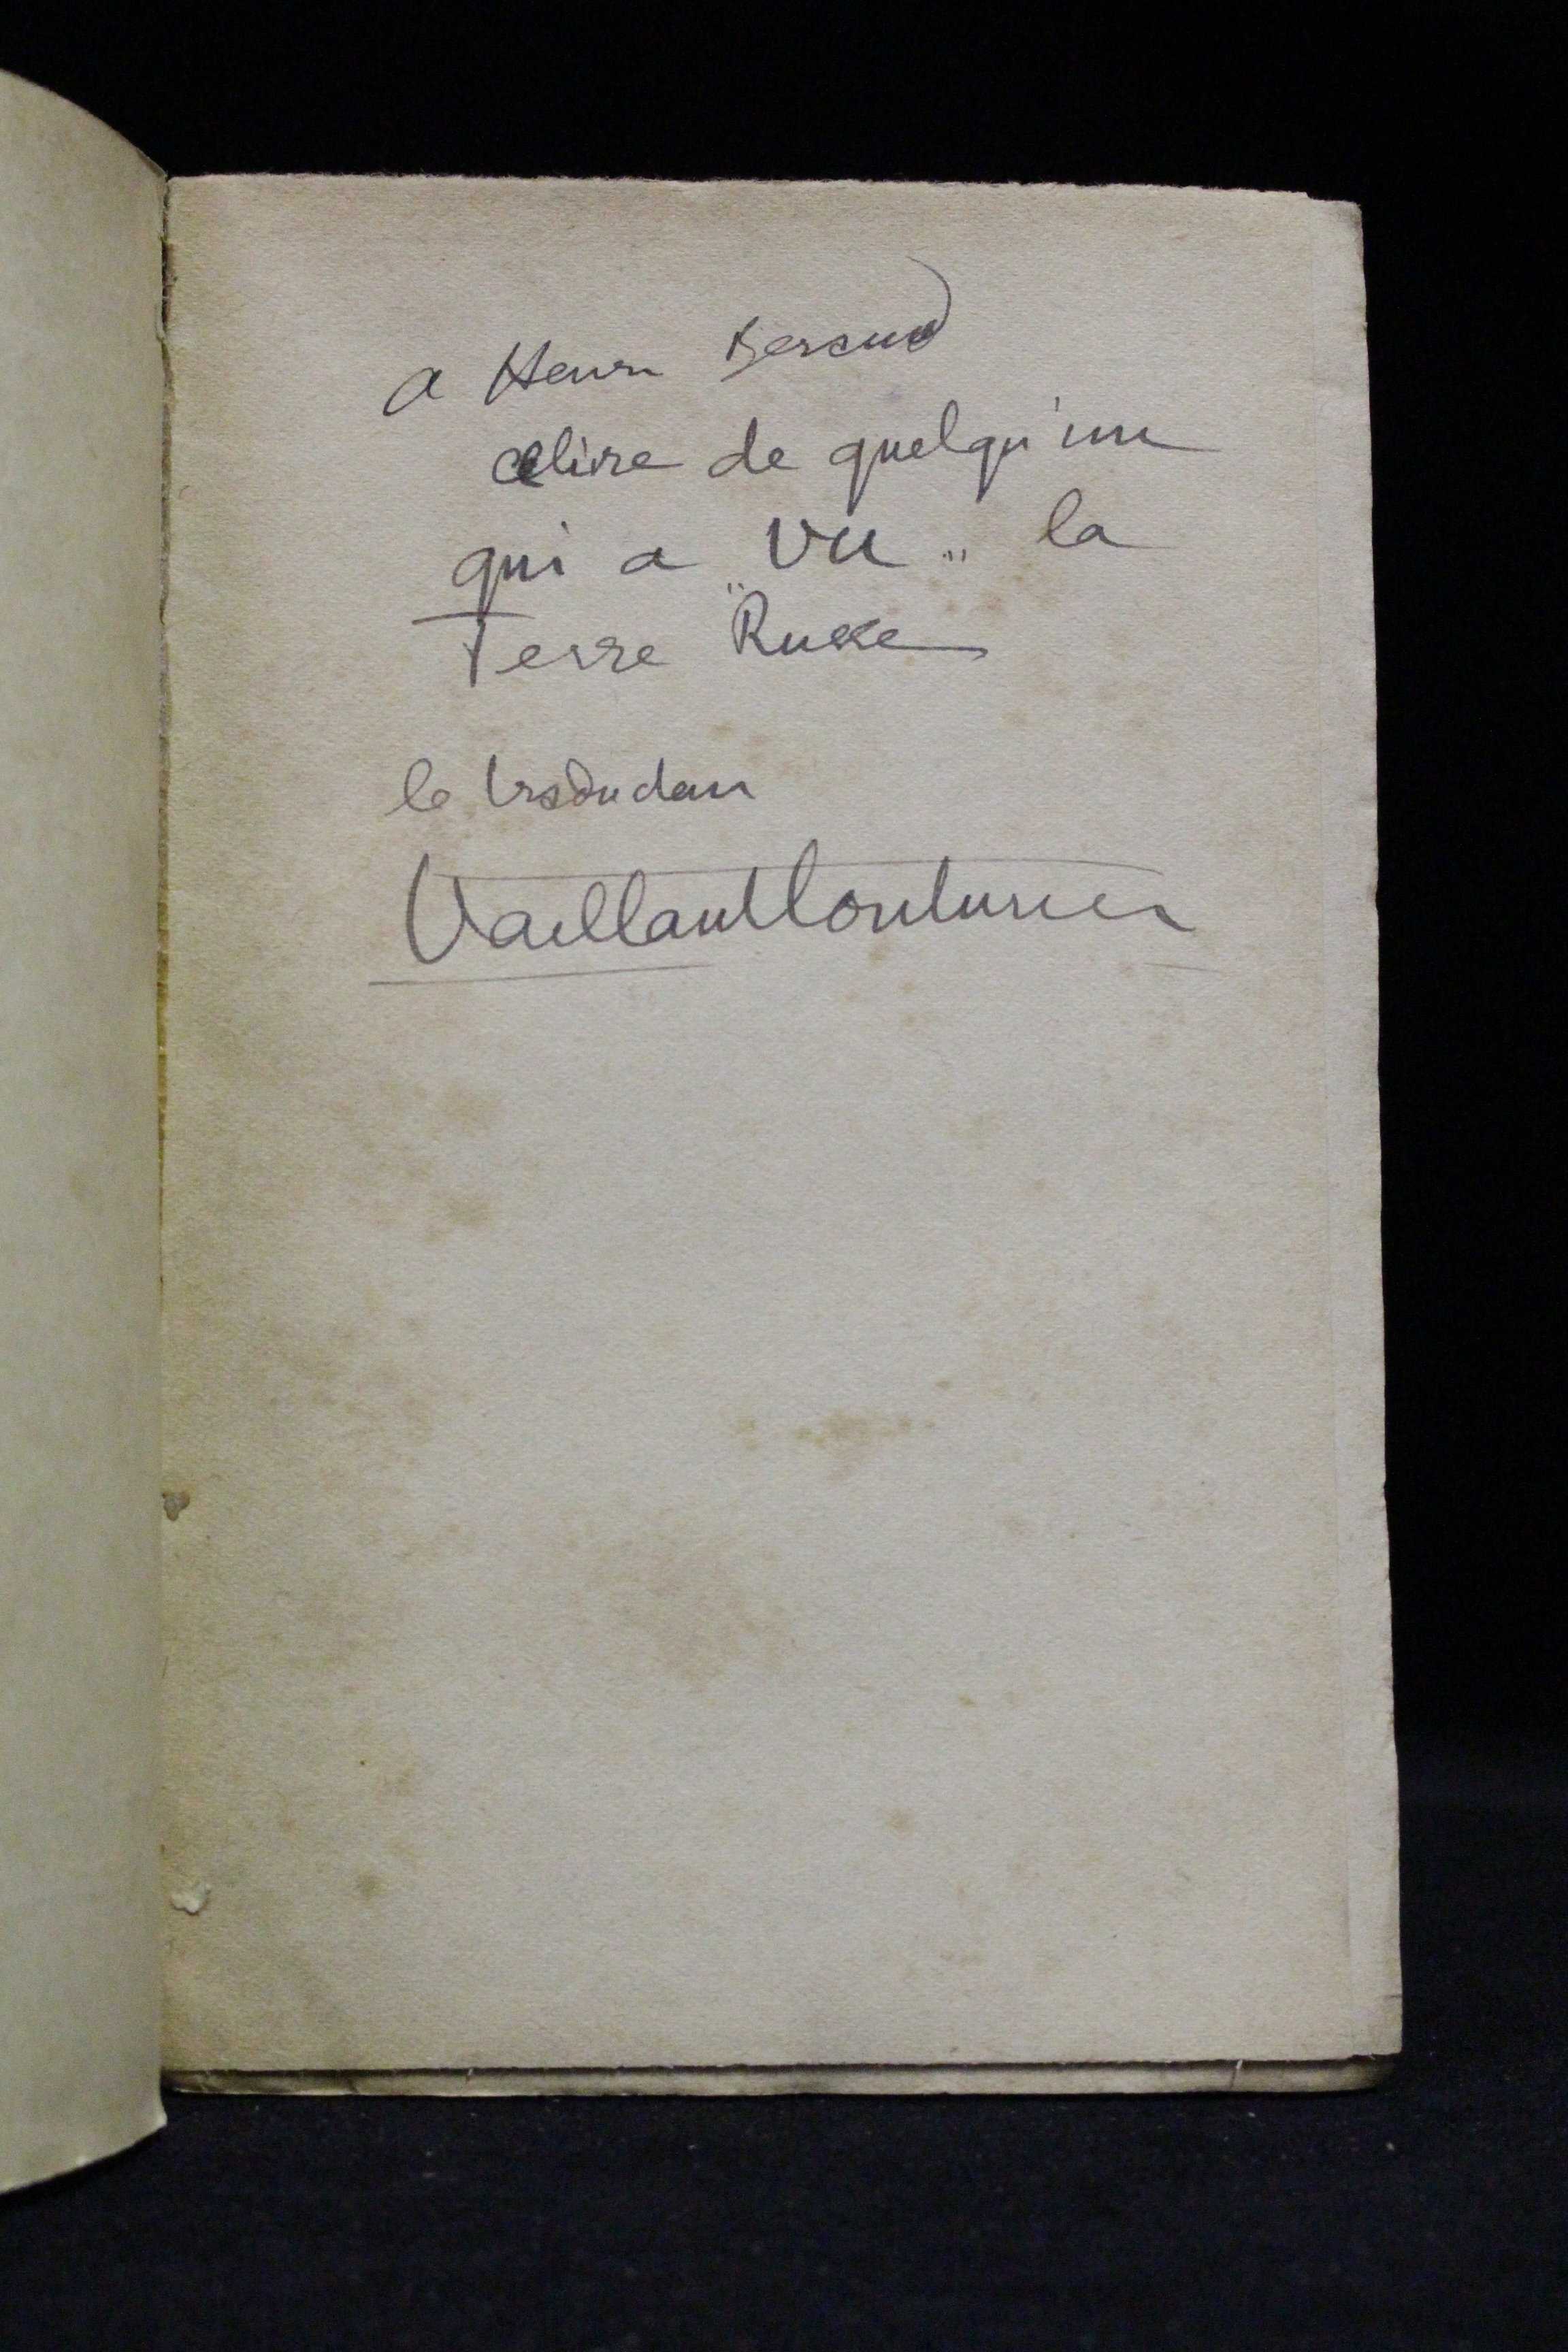 a Henri Beraud
ce livre de quelqu'un
qui a „ Vu „ la
Terre Russe
le traducteur
Vaillant Couturier